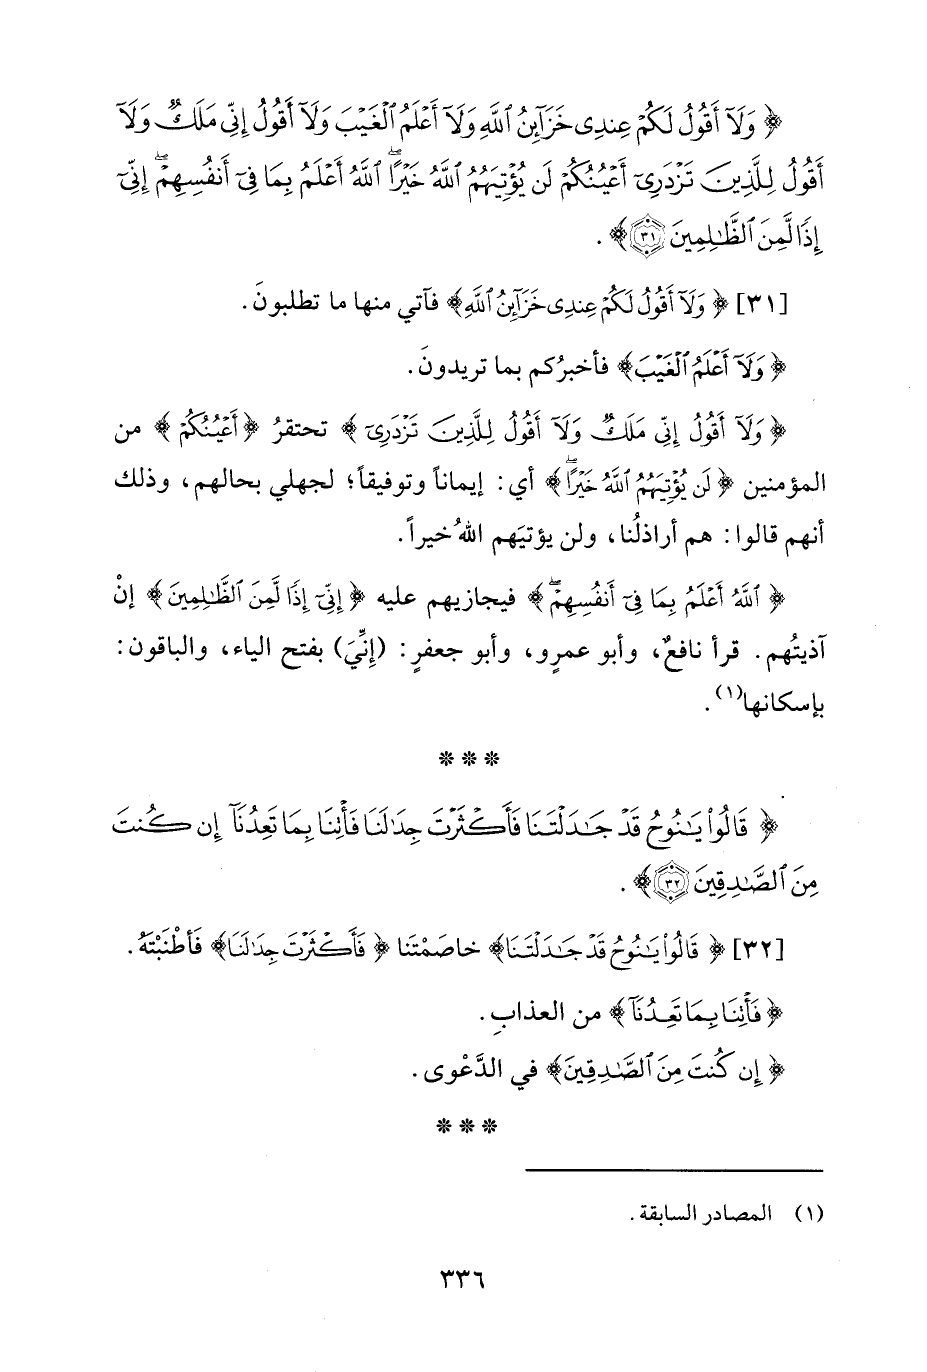 ﴿ وَلَآ أَقُولُ لَكُمْ عِندِى خَزَآئِنُ ٱللَّهِ وَلَآ أَعْلَمُ ٱلْغَيْبَ وَلَآ أَقُولُ إِنِّى مَلَكٌ وَلَآ
أَقُولُ لِلَّذِينَ تَزْدَرِىٓ أَعْيُنُكُمْ لَن يُؤْتِيَهُمُ ٱللَّهُ خَيْرًا ۖ ٱللَّهُ أَعْلَمُ بِمَا فِىٓ أَنفُسِهِمْ ۖ إِنِّىٓ
إِذًا لَّمِنَ ٱلظَّٰلِمِينَ ٣١﴾ .
[٣١] ﴿ وَلَآ أَقُولُ لَكُمْ عِندِى خَزَآئِنُ ٱللَّهِ﴾ فآتي منها ما تطلبونَ .
﴿ وَلَآ أَعْلَمُ ٱلْغَيْبَ﴾ فأخبرُكم بما تريدونَ .
﴿ وَلَآ أَقُولُ إِنِّى مَلَكٌ وَلَآ أَقُولُ لِلَّذِينَ تَزْدَرِىٓ ﴾ تحتقرُ ﴿أَعْيُنُكُمْ ﴾ من
المؤمنين ﴿ لَن يُؤْتِيَهُمُ ٱللَّهُ خَيْرًا ۖ﴾ أي: إيماناً وتوفيقاً؛ لجهلي بحالهم، وذلك
أنهم قالوا: هم أراذلُنا، ولن يؤتيَهم اللهُ خيراً.
﴿ ٱللَّهُ أَعْلَمُ بِمَا فِىٓ أَنفُسِهِمْ ۖ﴾ فيجازيهم عليه ﴿ إِنِّىٓ إِذًا لَّمِنَ ٱلظَّٰلِمِينَ ﴾ إنْ
آذيتُهم. قرأ نافعٌ، وأبو عمرٍو، وأبو جعفرٍ: (إِنِّيَ) بفتح الياء، والباقون:
بإسكانها(١).
* * *
﴿ قَالُوا۟ يَٰنُوحُ قَدْ جَٰدَلْتَنَا فَأَكْثَرْتَ جِدَٰلَنَا فَأْتِنَا بِمَا تَعِدُنَآ إِن كُنتَ
مِنَ ٱلصَّٰدِقِينَ ٣٢﴾ .
[٣٢] ﴿ قَالُوا۟ يَٰنُوحُ قَدْ جَٰدَلْتَنَا﴾ خاصَمْتَنا ﴿ فَأَكْثَرْتَ جِدَٰلَنَا﴾ فَأَطْنَبْتَهُ .
﴿ فَأْتِنَا بِمَا تَعِدُنَآ ﴾ من العذابِ.
﴿ إِن كُنتَ مِنَ ٱلصَّٰدِقِينَ﴾ في الدَّعْوى .
* * *
(١) المصادر السابقة .
٣٣٦